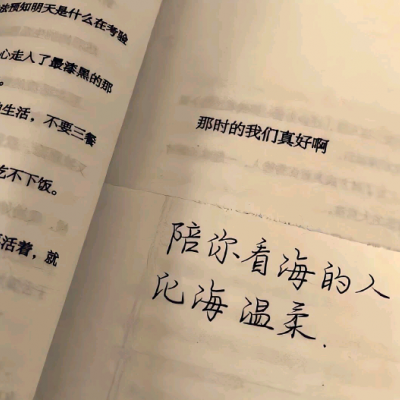 预知明天是什么在考验
心走入了最漆黑的那
。
生活，不要三餐
吃不下饭。
活着，就
那时的我们真好啊
陪你看海的人
比海温柔.